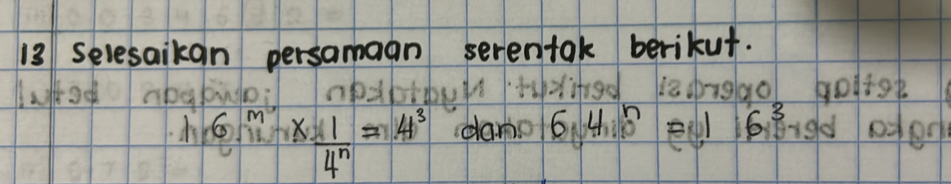 13 Selesaikan persamaan serentak berikut.
16^m × 1/4^n = 4³ dan 64^n = 16³